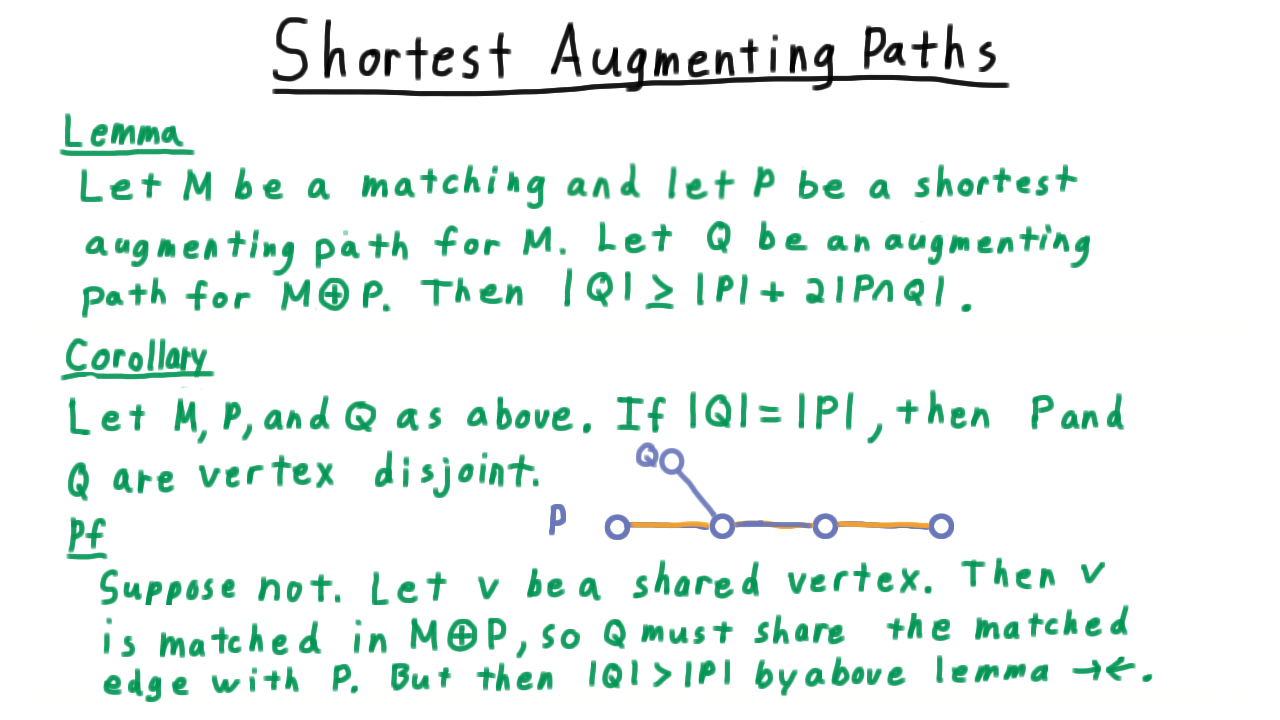 Shortest Augmenting Paths
Lemma
Let M be a matching and let P be a shortest
augmenting path for M. Let Q be an augmenting
path for M⊕P. Then |Q| ≥ |P| + 2|P∩Q|.
Corollary
Let M, P, and Q as above. If |Q| = |P|, then P and
Q are vertex disjoint.
Q
P
Pf
Suppose not. Let v be a shared vertex. Then v
is matched in M⊕P, so Q must share the matched
edge with P. But then |Q| > |P| by above lemma →←.